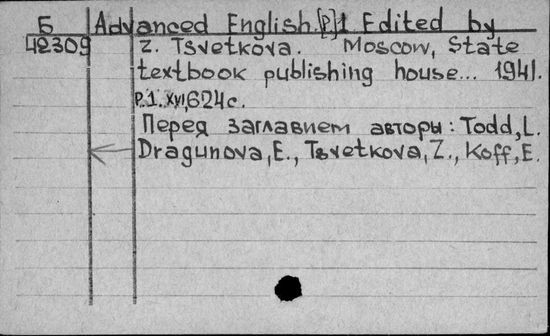 Б Advanced English.[P]1 Edited by
42309 Z. Tsvetkova. Moscow, State
textbook publishing house... 1941.
P.1. XVI,624c.
Перед заглавием авторы: Todd,L.
Dragunova,E., Tsvetkova,Z., Koff,E.